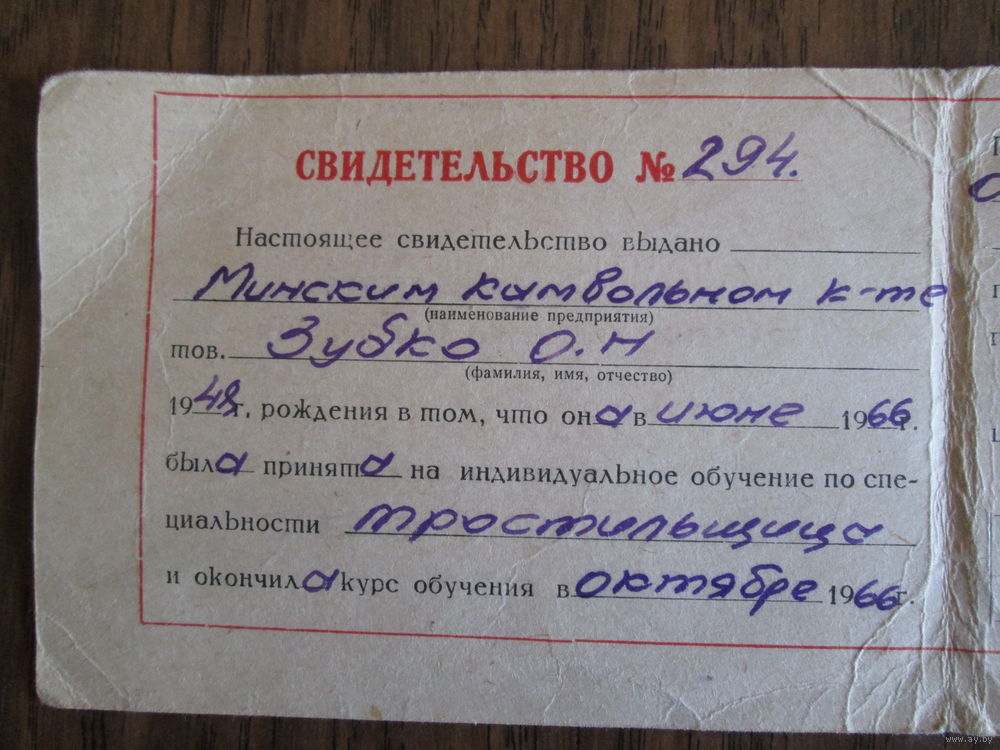 СВИДЕТЕЛЬСТВО № 294.
Настоящее свидетельство выдано
Минским камвольном к-те
(наименование предприятия)
тов. Зубко О.Н
(фамилия, имя, отчество)
1948 г. рождения в том, что она в июне 1966 г.
была принята на индивидуальное обучение по спе-
циальности тростильщица
и окончила курс обучения в октябре 1966 г.
www.ay.by